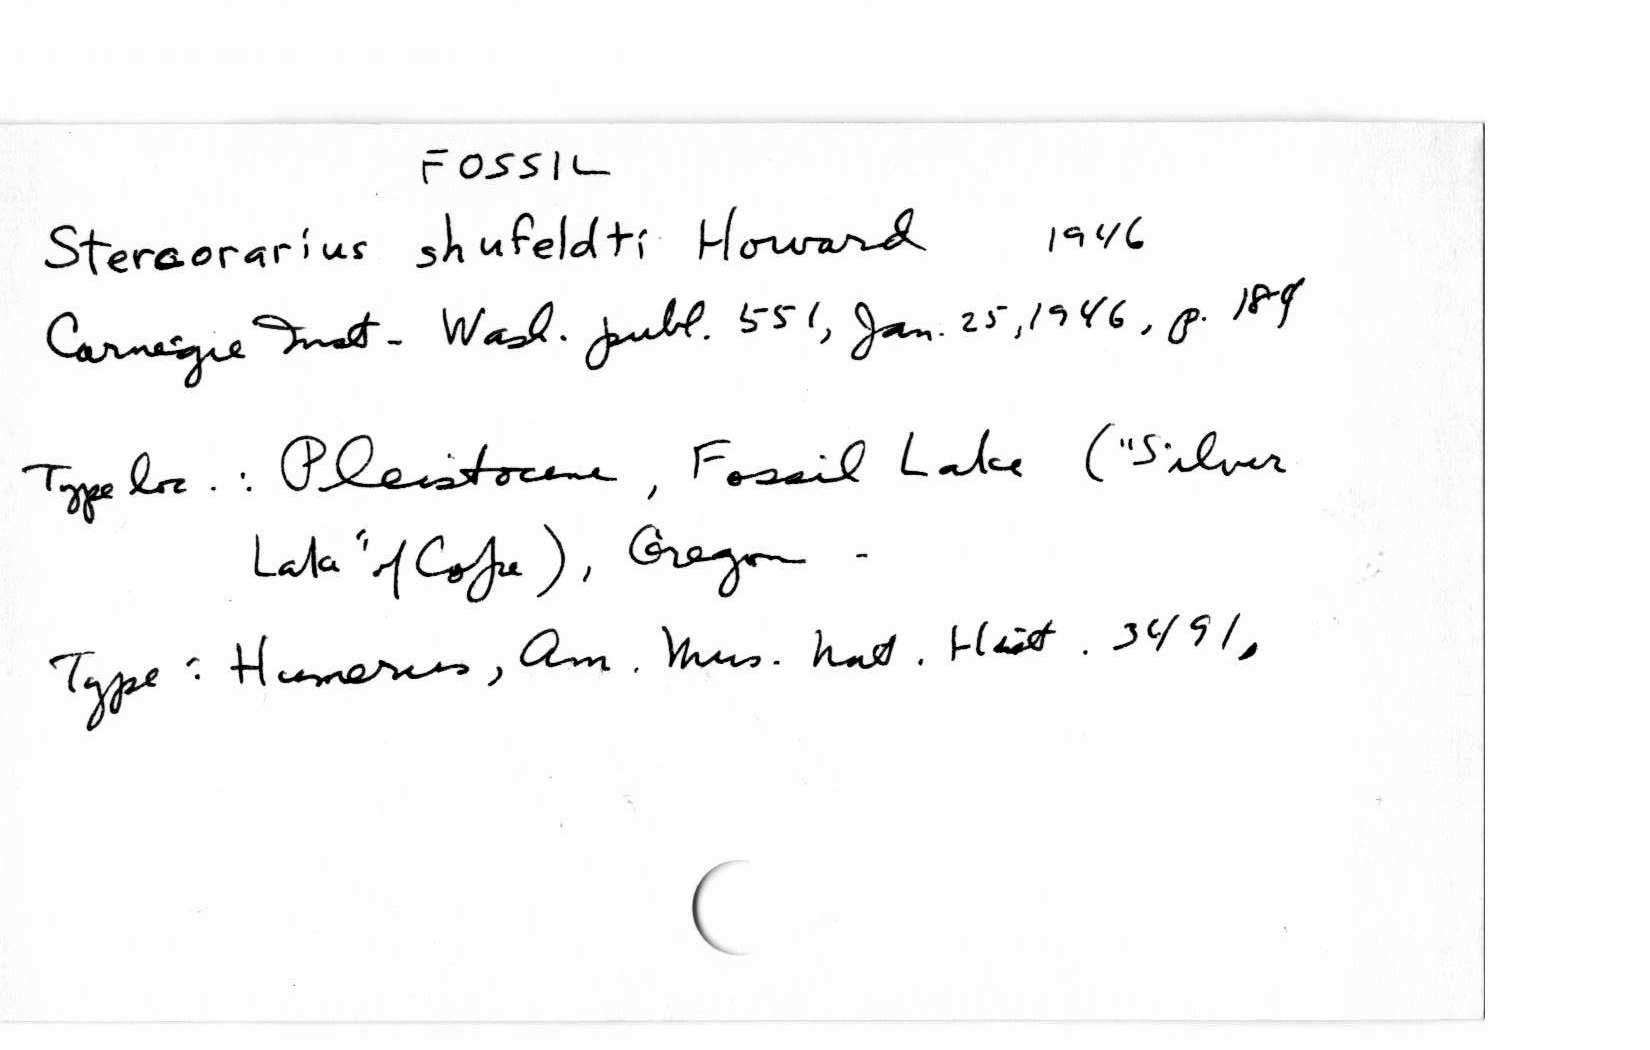 FOSSIL
Stercorarius shufeldti Howard 1946
Carnegie Inst. Wash. publ. 551, Jan. 25, 1946, p. 184
Type loc. : Pleistocene, Fossil Lake ("Silver
Lake" of Cope), Oregon -
Type : Humerus, Am. Mus. Nat. Hist. 3491.